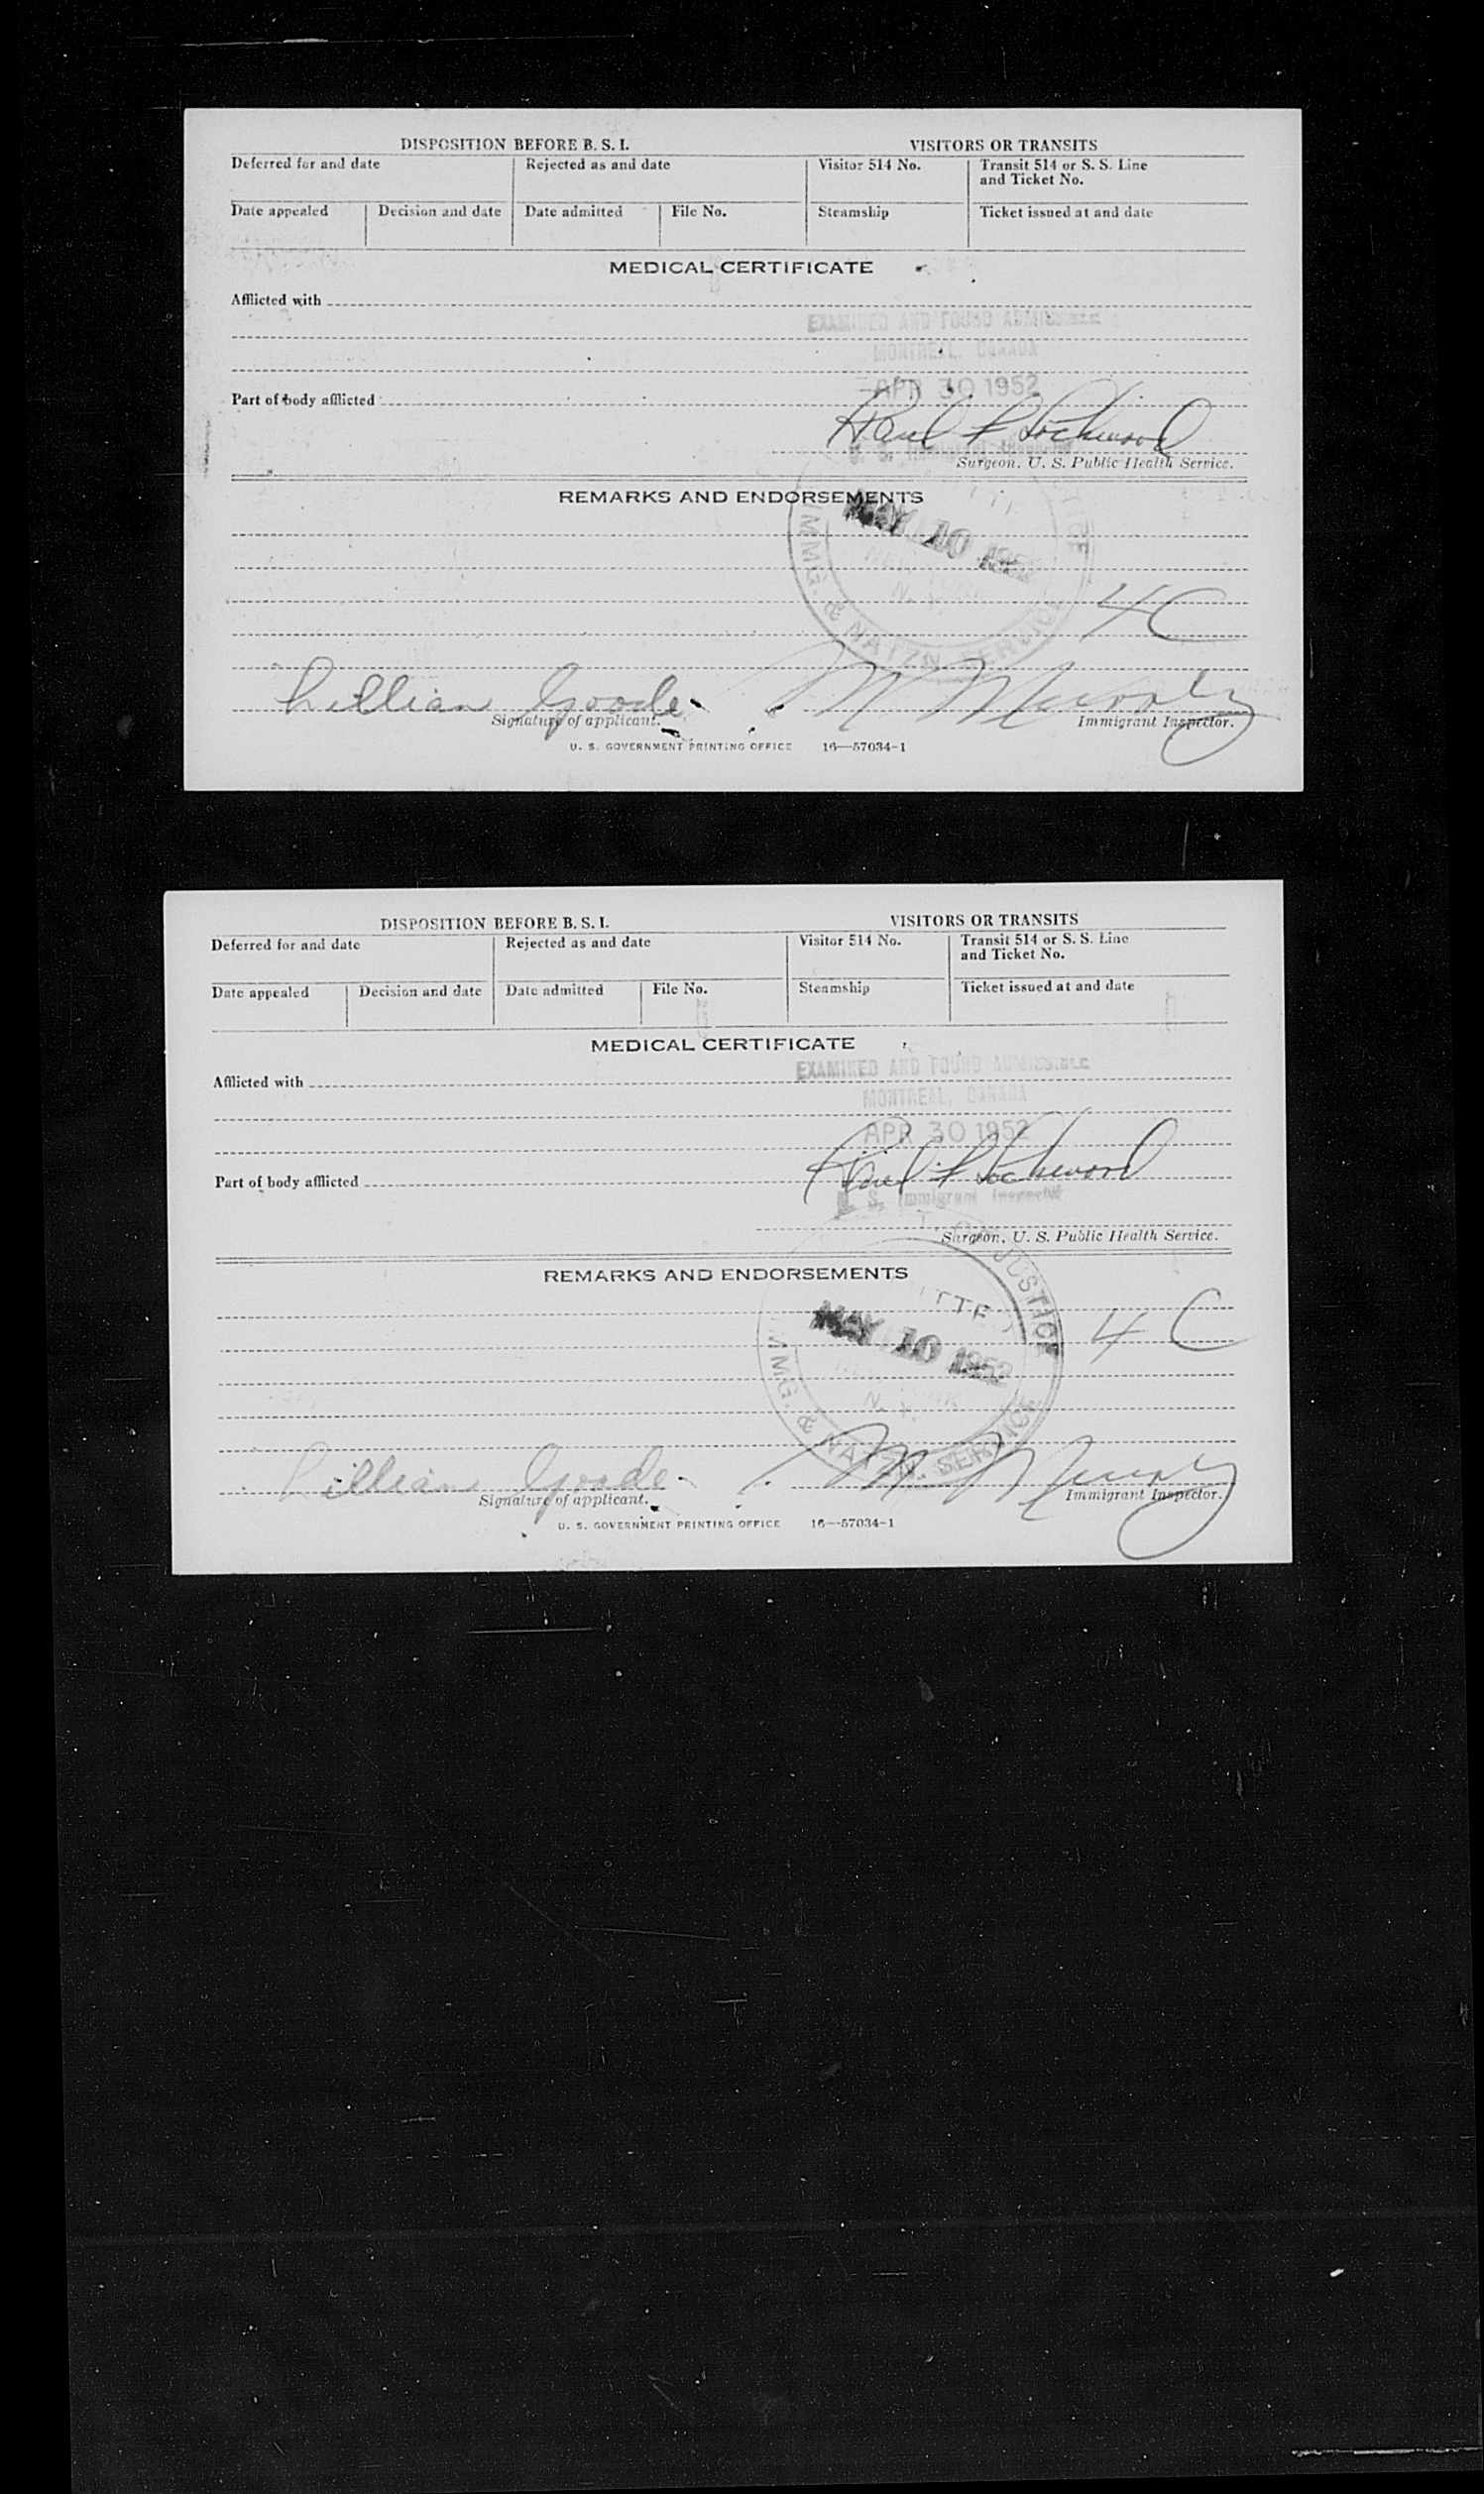 DISPOSITION BEFORE B. S. I. VISITORS OR TRANSITS
Deferred for and date Rejected as and date Visitor 514 No. Transit 514 or S. S. Line and Ticket No.
Date appealed Decision and date Date admitted File No. Steamship Ticket issued at and date
MEDICAL CERTIFICATE
Afflicted with
EXAMINED AND FOUND ADMISSIBLE
MONTREAL, CANADA
APR 30 1952
Part of body afflicted
Paul F Lockwood
U. S. Immigrant Inspector
Surgeon, U. S. Public Health Service.
REMARKS AND ENDORSEMENTS
MAY 10 1952
N. Y.
IMMG. & NATZN. SERVICE
4C
Lillian Goode
M Murphy
Signature of applicant. Immigrant Inspector.
U. S. GOVERNMENT PRINTING OFFICE 16—57034-1
DISPOSITION BEFORE B. S. I. VISITORS OR TRANSITS
Deferred for and date Rejected as and date Visitor 514 No. Transit 514 or S. S. Line and Ticket No.
Date appealed Decision and date Date admitted File No. Steamship Ticket issued at and date
MEDICAL CERTIFICATE
Afflicted with
EXAMINED AND FOUND ADMISSIBLE
MONTREAL, CANADA
APR 30 1952
Part of body afflicted
Paul F Lockwood
U. S. Immigrant Inspector
Surgeon, U. S. Public Health Service.
REMARKS AND ENDORSEMENTS
T. OF JUSTICE
MAY 10 1952
N. Y.
IMMG. & NATZN. SERVICE
4 C
Lillian Goode
M Murphy
Signature of applicant. Immigrant Inspector.
U. S. GOVERNMENT PRINTING OFFICE 16—57034-1